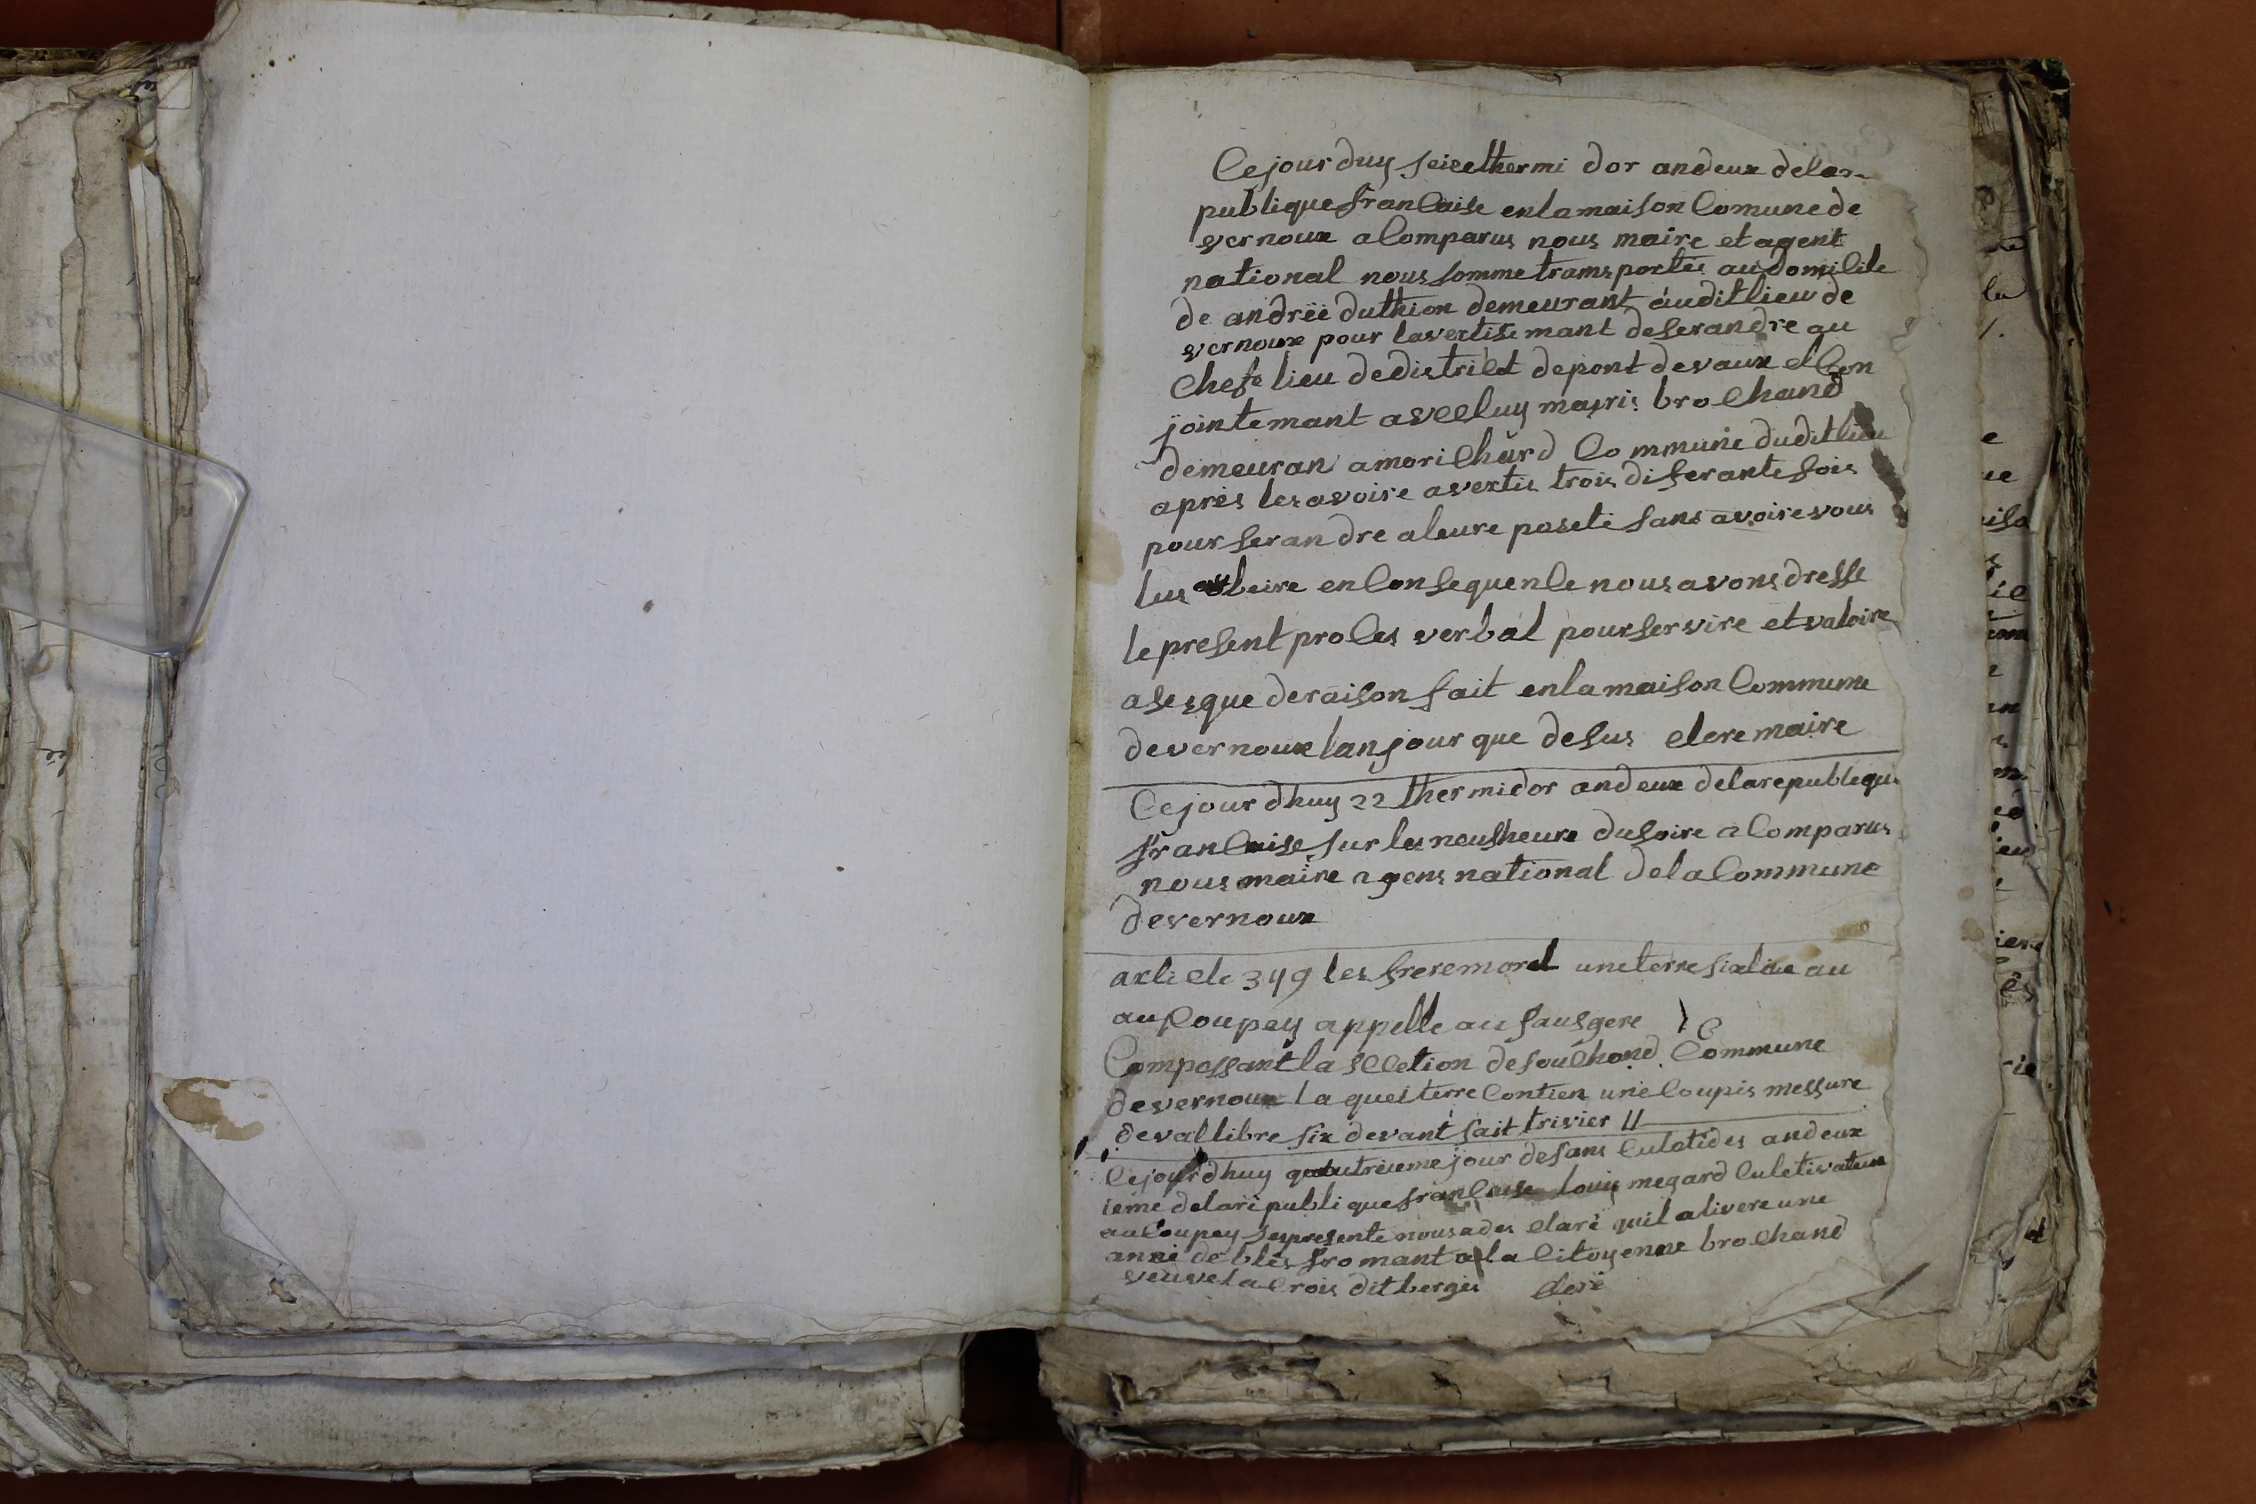 Cejour duy seize thermi dor andeux delare
publique francaise enlamaison Comune de
vernoux a Comparus nous maire et agent
national nous somme transportés audomicile
de andréé duthion demeurant auditlieu de
vernoux pour lavertise mant deserandre au
chefe lieu dedistrict depont devaux et Con
jointemant avecluy marris brochand
demeuran amorichard Commune dudit lieu
après lesavoire avertis trois diferante fois
pour serandre aleure poste sans avoire vous
lus obeire enConsequence nous avons dresse
le present proces verbal pourservire et valoire
asesque deraison fait enlamaison Commune
devernoux lan jour que desus clere maire
Cejour dhuy 22 thermidor andeux delarepublique
francaise sur les neufheure dusoire a Comparus
nous maire agens national delaCommune
devernoux
article 349 les frere morel uneterre sizeliue au
auCoupey appelle au fausgere
Compossant la section desouchond Commune
devernoux la quelterre Contien une Coupés messure
devallibre six devant sait trivier //
Cejourdhuy quatrieme jour desans culotides andeux
ieme delarépublique francaise louis megard culetivateur
auCoupey sespresente nousades claré quil alivere une
anné de blés fromant a la Citoyenne brochand
veuvelacrois ditberges cleré